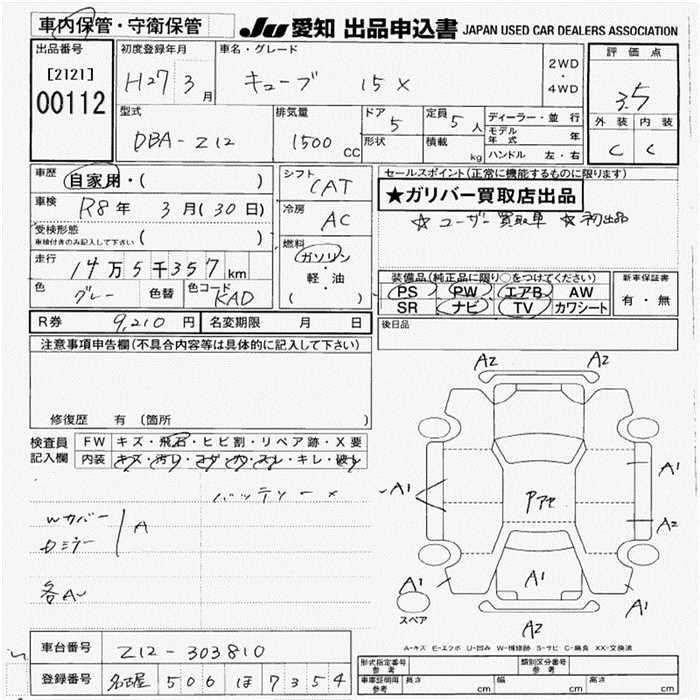 車内保管・守衛保管 JU 愛知 出品申込書 JAPAN USED CAR DEALERS ASSOCIATION
出品番号 [2121] 00112
初度登録年月 H27 3月
車名・グレード キューブ 15X
2WD・4WD
評価点 3.5
外装 C 内装 C
型式 DBA-Z12
排気量 1500 CC
ドア 5
形状
定員 5人
積載 kg
ディーラー・並行
モデル年式 年
ハンドル 左・右
車歴 自家用・( )
車検 R8年 3月(30日)
受検形態 車検付きのみ記入して下さい ( )
走行 14万5千357km
色 グレー 色替 色コード KAD
シフト CAT
冷房 AC
燃料 ガソリン・軽・油 ( )
セールスポイント(正常に機能するものに限ります)
★ガリバー買取店出品
☆ユーザー買取車 ☆初出品
装備品(純正品に限り○をつけてください)
PS PW エアB AW
SR ナビ TV カワシート
新車保証書 有・無
後日品
R券 9,210円 名変期限 月 日
注意事項申告欄(不具合内容等は具体的に記入して下さい)
修復歴 有 (箇所 )
検査員記入欄
FW キズ・飛石・ヒビ割・リペア跡・X要
内装 キズ・汚リ・コゲ・穴・スレ・キレ・破レ
バッテリー×
Wカバー
Dミラー A
各A~
A2 A2
A1 A1
Pアセ
A2
A1 A1 A1
スペア
A2
A-キズ E-エクボ U-凹み W-補修跡 S-サビ C-腐食 XX-交換済
車台番号 Z12-303810
登録番号 名古屋 506 ほ 7354
形式指定番号 参考
類別区分番号 参考
車庫証明用 参考 長さ cm 幅 cm 高さ cm